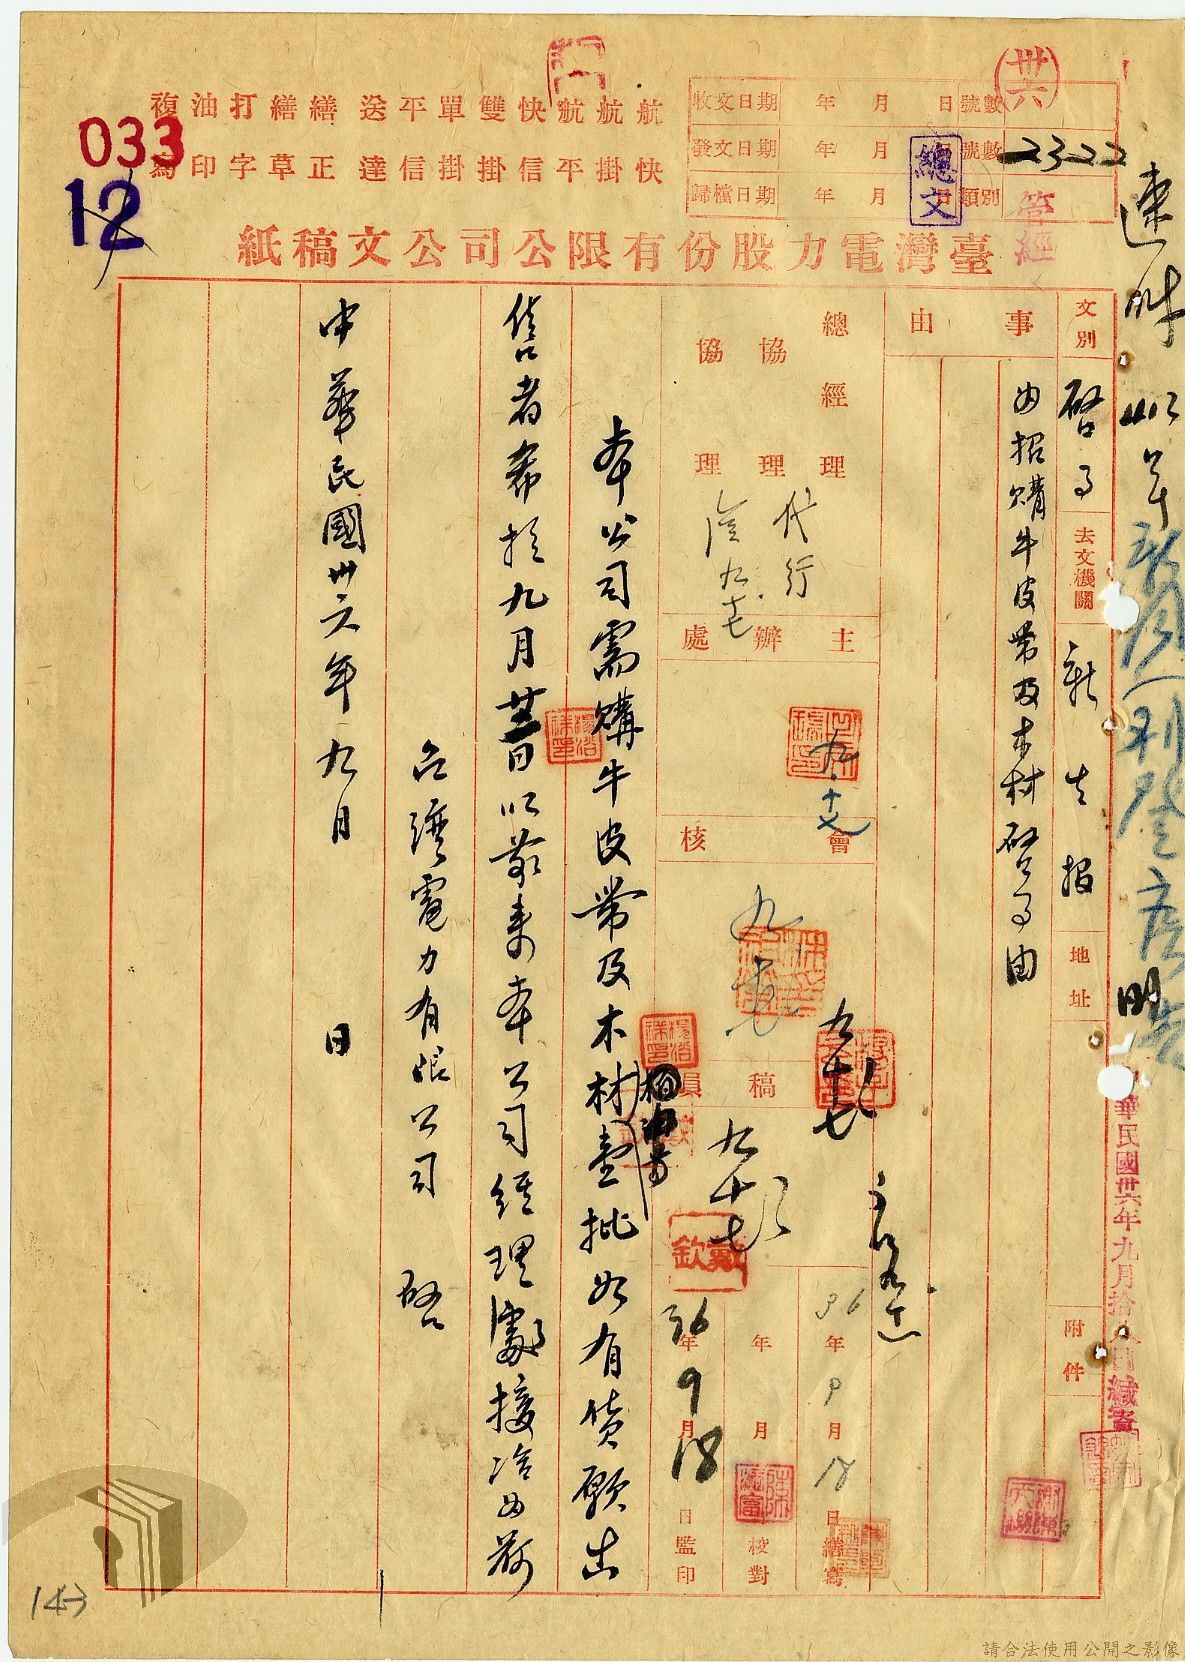 複寫 油印 打字 繕草 繕正 送達 平信 單掛 雙掛 快信 航平 航掛 航快
033
12
收文日期 年 月 日 號數
發文日期 年 月 日 號數 2322
歸檔日期 年 月 日 類別 管經
總文
卅六
臺灣電力股份有限公司公文稿紙
速
中華民國卅六年九月拾八日緘寄
文別 啓事 去文機關 新生報 地址 附件
事由
為招購牛皮帶及木材啓事由
總經理 協理 協理
代行
主辦處
會核
稿員
九十七
戴欽
36年9月18日繕寫
年 月 校對
36年9月18日監印
本公司需購牛皮帶及木材壹批如有貨願出
售者希於九月 日以前來本公司經理處接洽為荷
台灣電力有限公司 啓
中華民國卅六年九月 日
143
請合法使用公開之影像